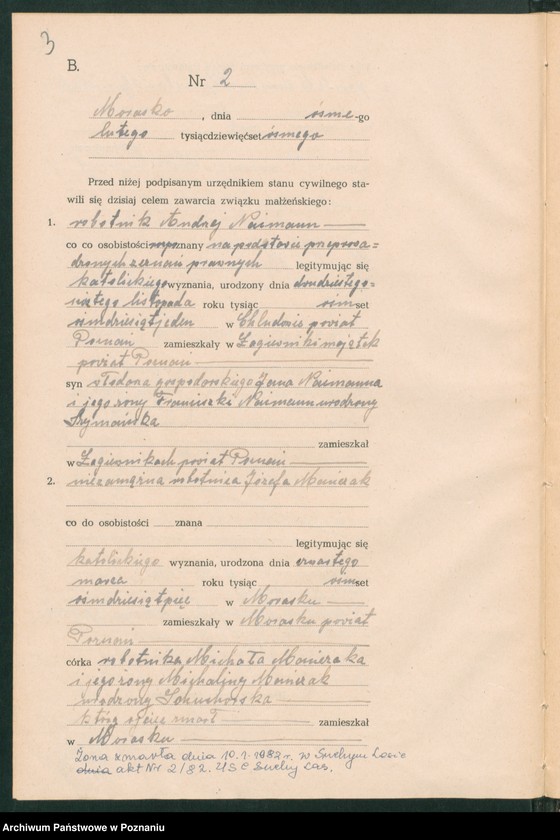 3
B.
Nr 2
Morasko, dnia ósme-go
lutego tysiącdziewięćset ósmego
Przed niżej podpisanym urzędnikiem stanu cywilnego sta-
wili się dzisiaj celem zawarcia związku małżeńskiego:
1. robotnik Andrzej Naimann
co co osobistości rozpoznany na podstawie przeprowa=
dzonych zeznań prawnych legitymując się
katolickiego wyznania, urodzony dnia dwudziestego=
listopada roku tysiąc ośmset
ośmdziesiąt jeden w Chludowie powiat
Poznań zamieszkały w Łagiewniki majątek
powiat Poznań
syn włodarza gospodarskiego Jana Naimanna
i jego żony Franciszki Naimann urodzony
Szymańska
zamieszkał
w Łagiewnikach powiat Poznań
2. niezamężna robotnica Józefa Maniczak
co do osobistości znana
legitymując się
katolickiego wyznania, urodzona dnia czwartego
marca roku tysiąc ośmset
ośmdziesiąt pięć w Morasku
zamieszkały w Morasku powiat
Poznań
córka robotnika Michała
i jego żony Michaliny
urodzony
zmarł zamieszkał
w Morasku
Żona zmarła dnia 10.1.1982r. w Suchym Lesie
dnia akt Nr 2/82. USC Suchy Las.
Archiwum Państwowe w Poznaniu